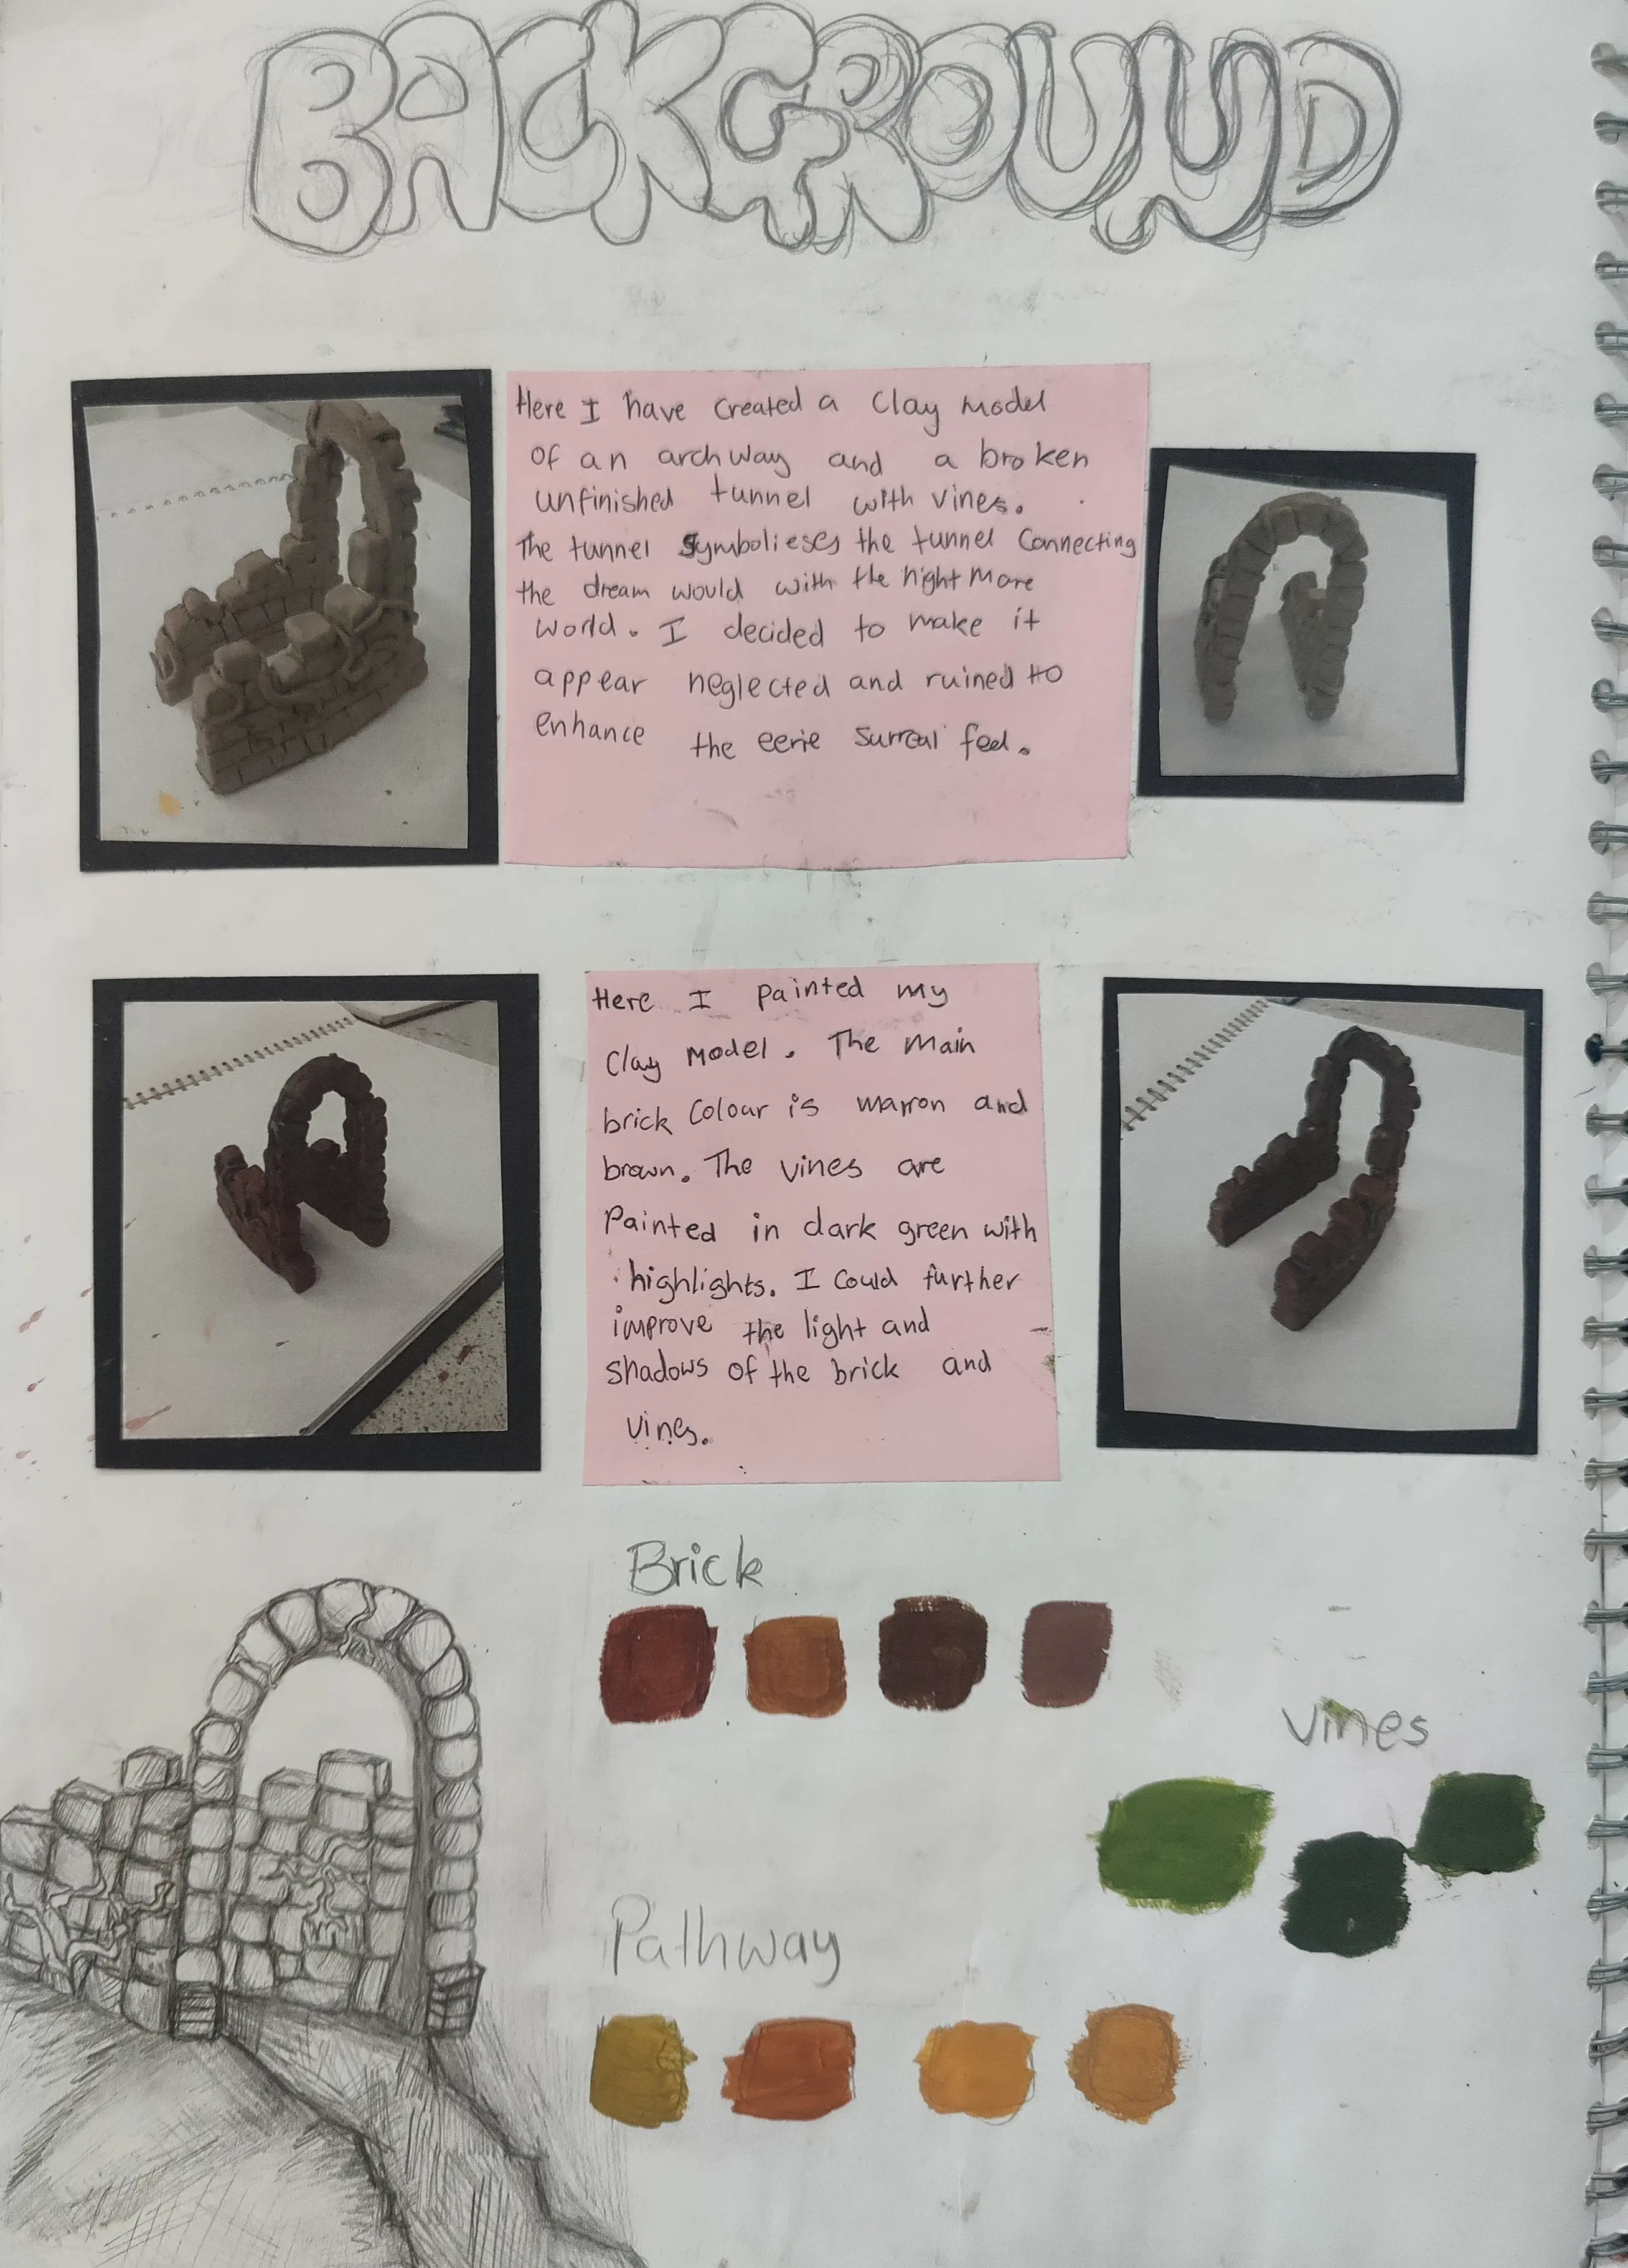 BACKGROUND
Here I have created a Clay Model
of an archway and a broken
unfinished tunnel with vines.
The tunnel symbolieses the tunnel Connecting
the dream would with the night More
world. I decided to make it
appear neglected and ruined to
enhance the eerie surreal feel.
Here I painted my
Clay Model. The Main
brick Colour is marron and
brown. The vines are
Painted in dark green with
highlights. I Could further
improve the light and
shadows of the brick and
vines.
Brick
vines
Pathway